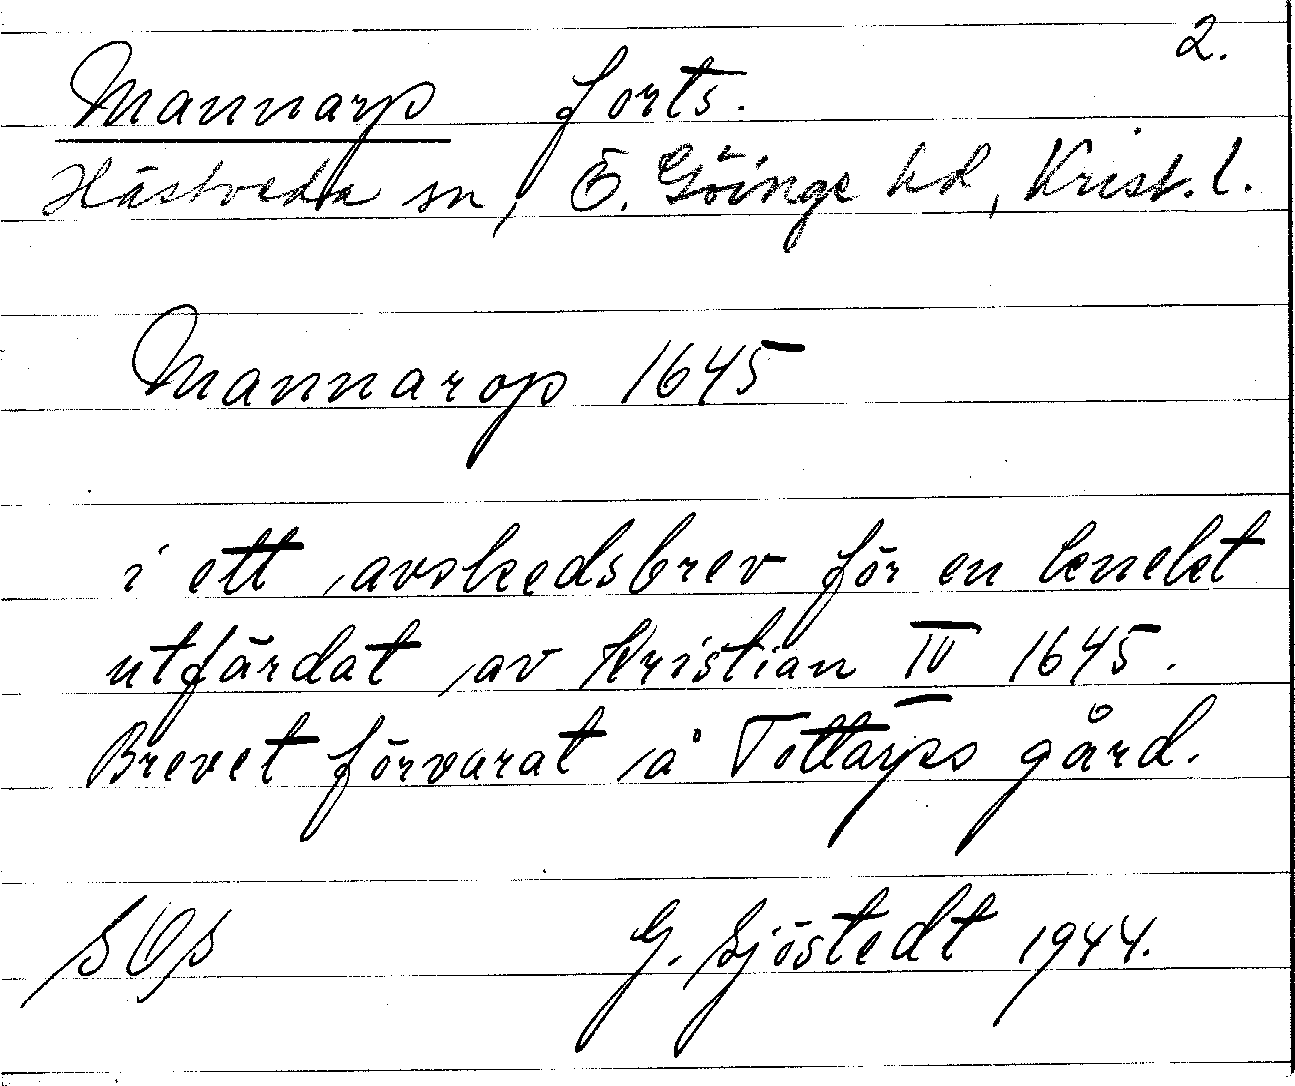 2.
Mannarp forts.
Hästveda sn, Ö. Göinge hd, Krist. l.
Mannarop 1645
i ett avskedsbrev för en knekt
utfärdat av Kristian IV 1645.
Brevet förvarat å Tottarps gård.
G. Sjöstedt 1944.